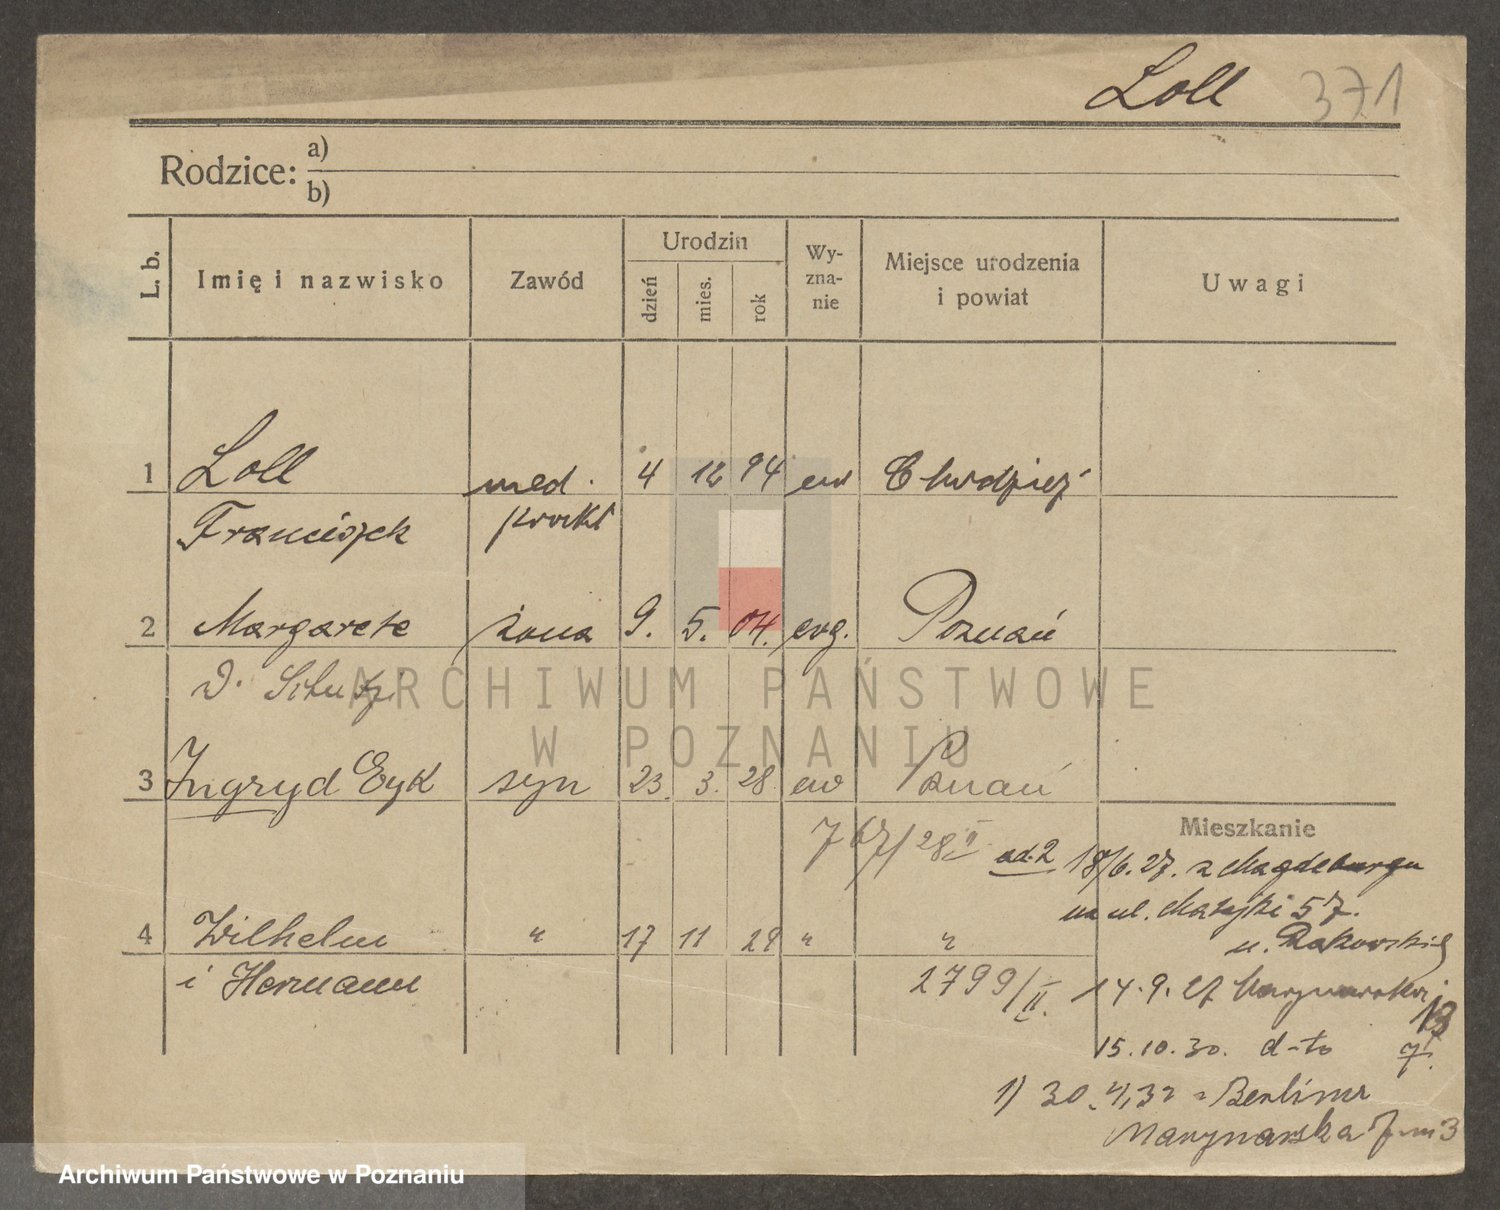 Loll 371
Rodzice: a)
b)
L. b. Imię i nazwisko Zawód Urodzin dzień mies. rok Wy-zna-nie Miejsce urodzenia i powiat Uwagi
1 Loll med. 4 12 94 ew Chodzież
Franciszek prakt
2 Margarete żona 9. 5. 04. ewg. Poznań
ARCHIWUM PAŃSTWOWE
W POZNANIU
3 Ingryd Eyk syn 23. 3. 28 ew Poznań
Mieszkanie
767/28 II ad. 2 18/6. 27. z Magdeburga
na ul. Matejki 57.
u. Rakowskiej
4 Wilhelm " 17 11 29 " "
i Hermann 2799/II. 14. 9. 27 Marynarska
13
15. 10. 30. d-to 7.
1) 30. 4. 32 z Berlina
Marynarska 7 m 3
Archiwum Państwowe w Poznaniu